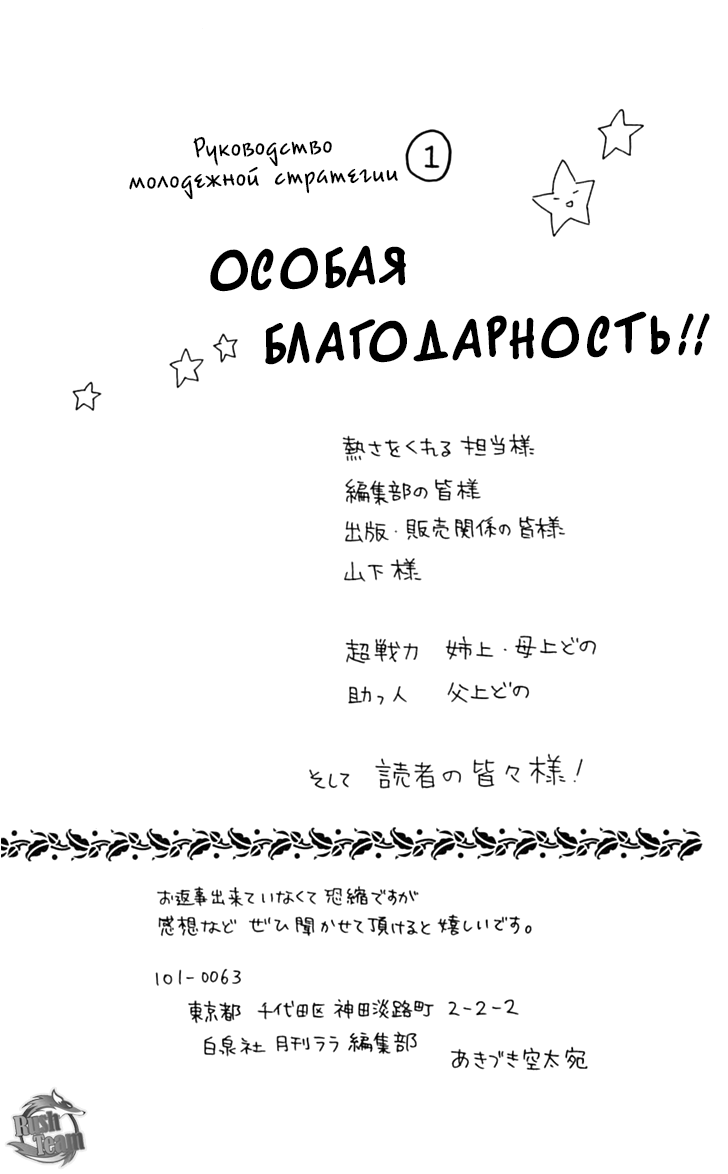 Руководство
молодежной стратегии 1
ОСОБАЯ
БЛАГОДАРНОСТЬ!!
熱さをくれる 担当様
編集部の皆様
出版・販売関係の皆様
山下様
超戦力 姉上・母上どの
助っ人 父上どの
そして 読者の皆々様!
お返事出来ていなくて恐縮ですが
感想など ぜひ聞かせて頂けると嬉しいです。
101-0063
東京都 千代田区 神田淡路町 2-2-2
白泉社 月刊ララ 編集部
あきづき空太宛
Rush
Team